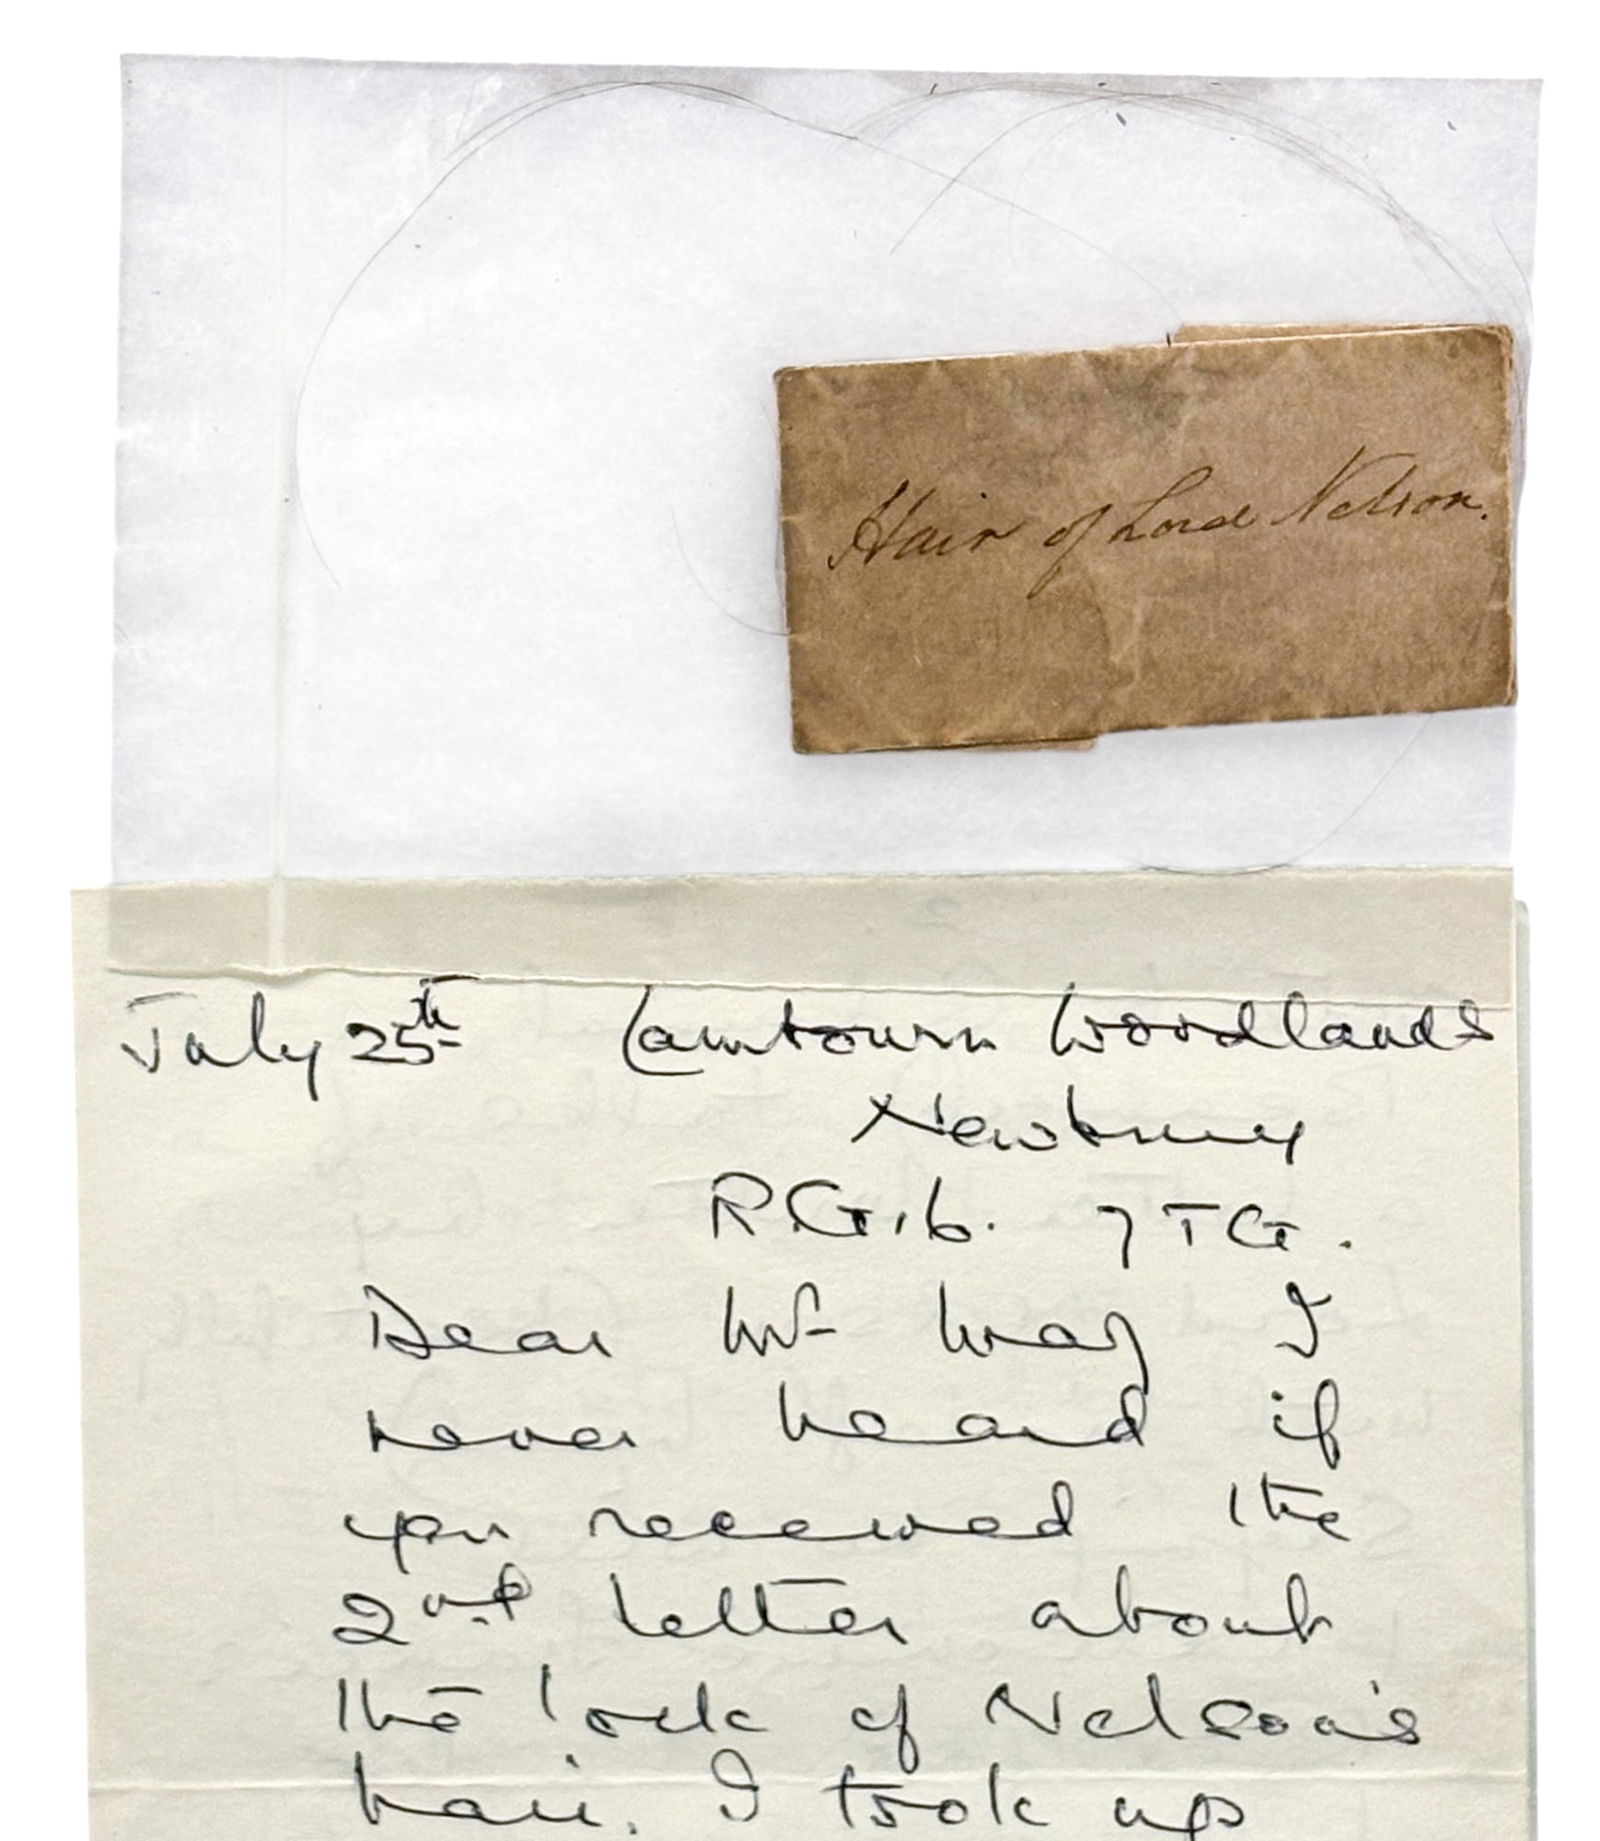 Hair of Lord Nelson.
July 25th Lambourn Woodlands
Newbury
R.G.16. 7TG.
Dear Mr I
never heard if
you received the
2nd letter about
the lock of Nelson's
hair. I took up